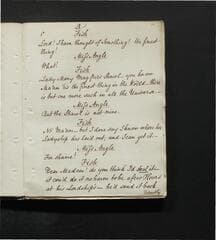 Fish
Lord! I have thought of Something! the finest
thing!
Miss Angle
What!
Fish
Lady Mary Magpies Shawl, you know
Madam 'tis the finest thing in the World. There
is but one more such in all the Universe—
Miss Angle
But the Shawl is not mine.
Fish
No Madam— but I dare say I know where her
Ladyship has laid out, and I can get it—
Miss Angle
For shame!
Fish
Dear Madam! do you think I'd steal it—
it could do it no harm to be a few Hours
at his Lordships— he'd send it back